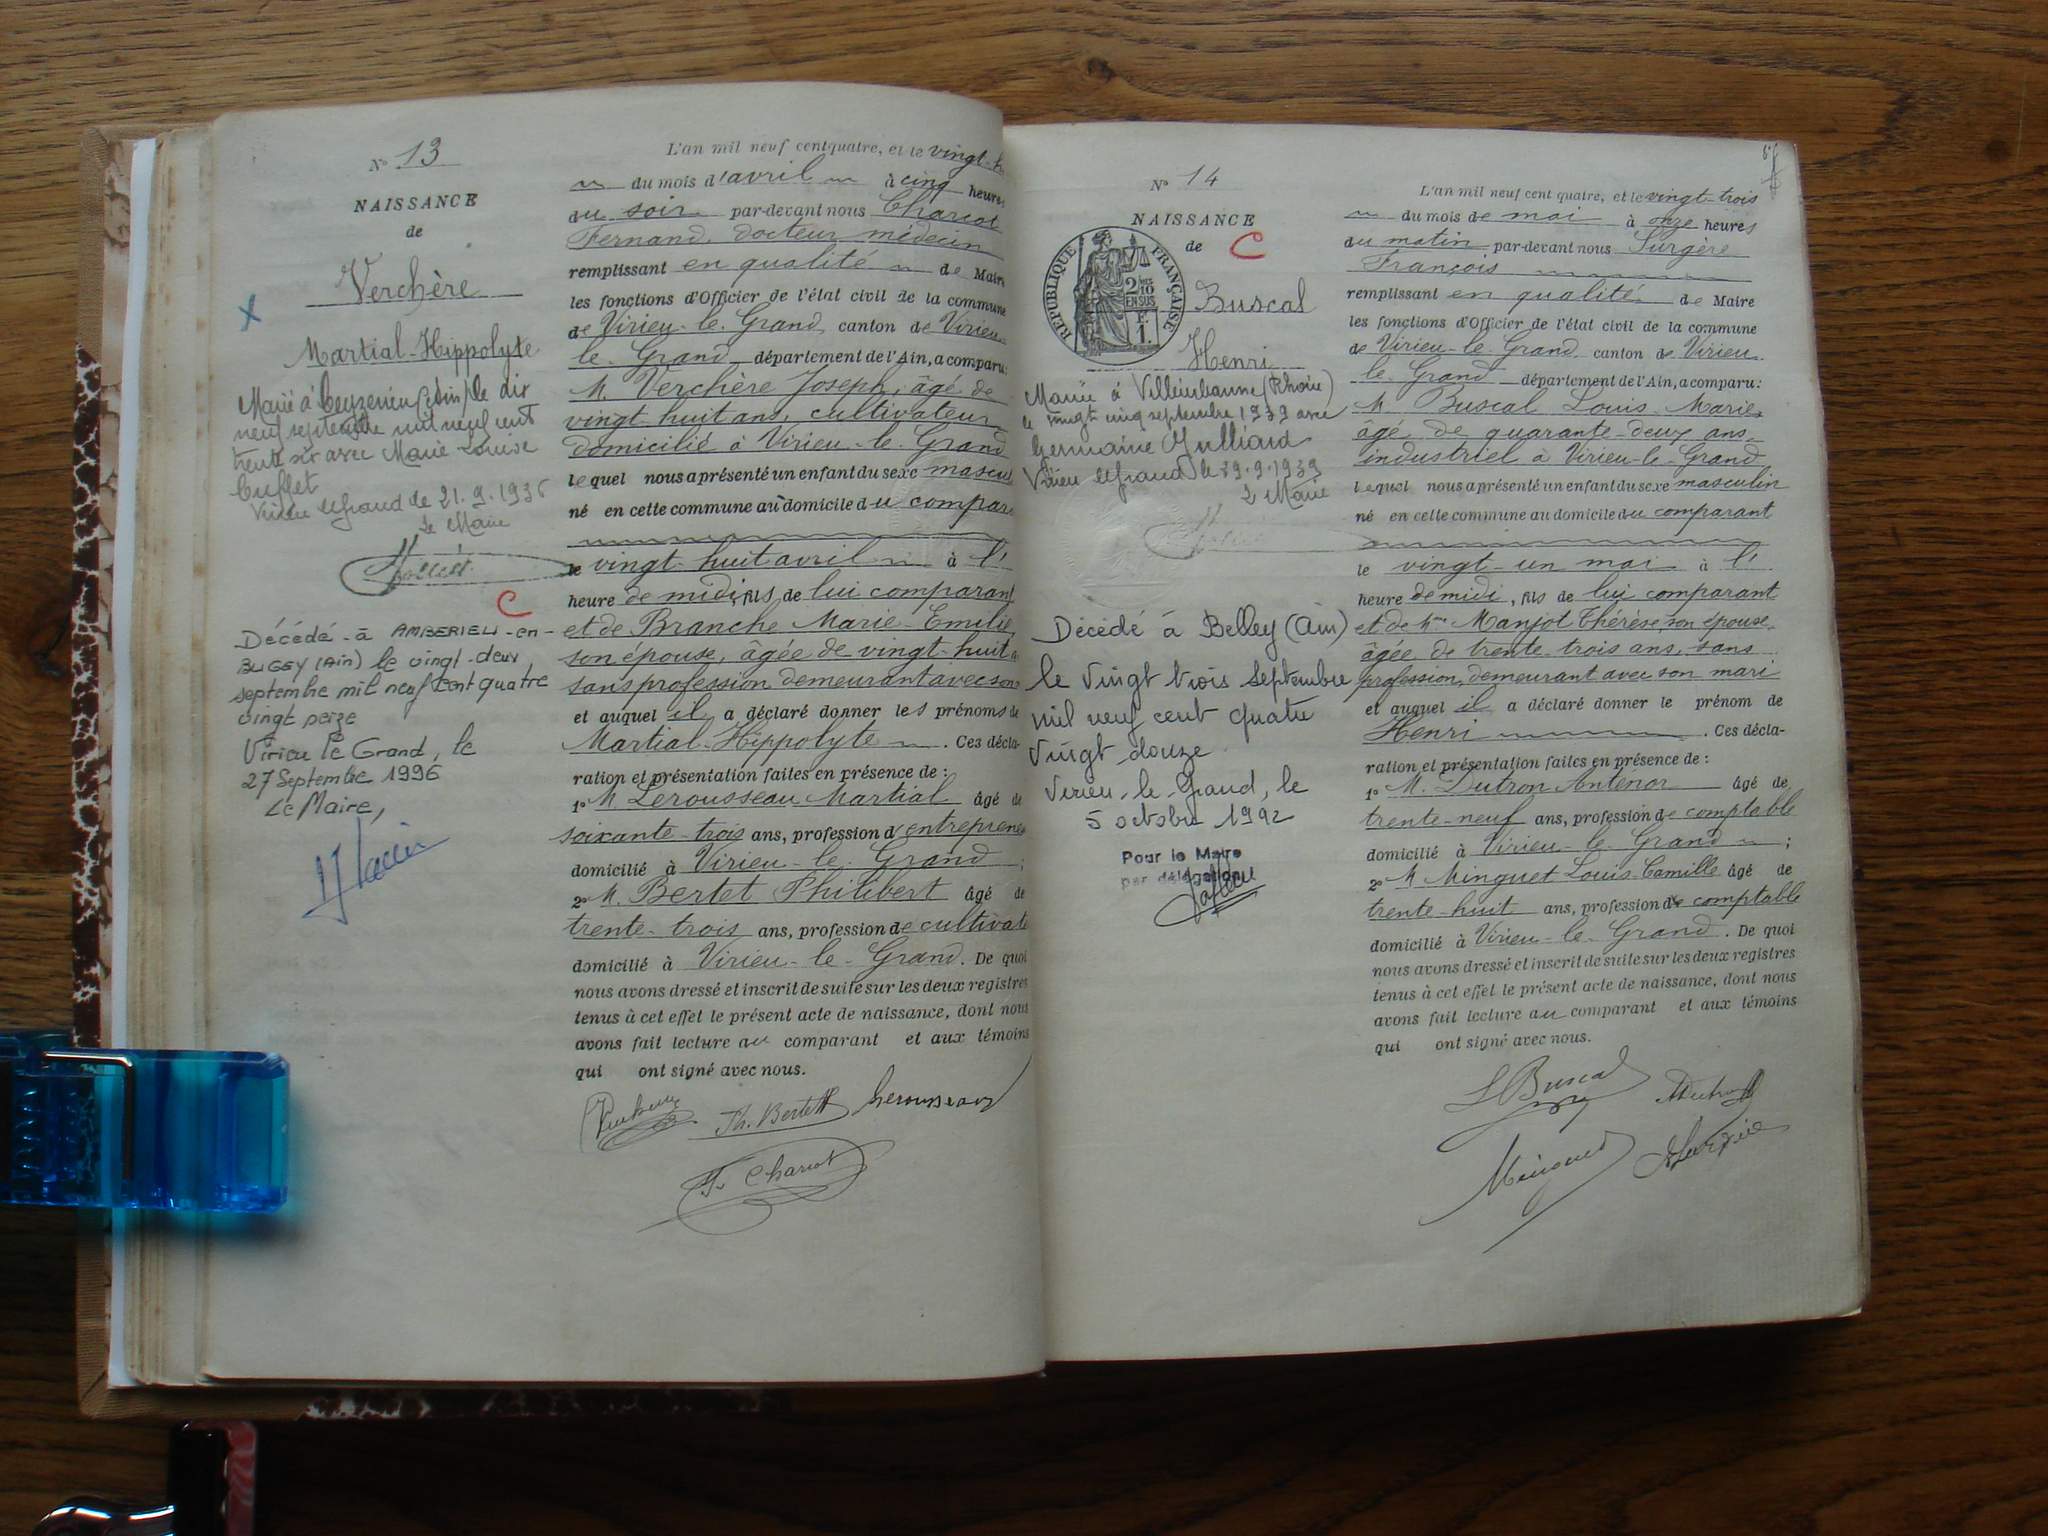 N° 13
NAISSANCE
de
Verchère
Martial-Hippolyte
Marié à Ceyzerieu (Ain) le dix
neuf septembre mil neuf cent
trente six avec Marie Louise
Buffet
Virieu le Grand le 21.9.1936
Le Maire
C
Décédé à AMBERIEU-en-
BUGEY (Ain) le vingt-deux
septembre mil neuf cent quatre
vingt seize
Virieu le Grand, le
27 Septembre 1996
Le Maire,
L'an mil neuf cent quatre, et le vingt-h
du mois d'avril à cinq heures
du soir par-devant nous Charcot
Fernand, docteur médecin
remplissant en qualité de Maire
les fonctions d'Officier de l'état civil de la commune
de Virieu-le-Grand canton de Virieu
le-Grand département de l'Ain, a comparu:
M. Verchère Joseph, âgé de
vingt-huit ans, cultivateur
domicilié à Virieu-le-Grand
lequel nous a présenté un enfant du sexe mascu
né en cette commune au domicile du compar
le vingt-huit avril à l'
heure de midi, fils de lui comparant
et de Branche Marie-Emilie,
son épouse, âgée de vingt-huit a
sans profession demeurant avec son
et auquel il a déclaré donner les prénoms de
Martial-Hippolyte. Ces décla-
ration et présentation faites en présence de :
1° M. Lerousseau Martial âgé de
soixante-trois ans, profession d'entrepren
domicilié à Virieu-le-Grand ;
2° M. Bertet Philibert âgé de
trente-trois ans, profession de cultivate
domicilié à Virieu-le-Grand. De quoi
nous avons dressé et inscrit de suite sur les deux registres
tenus à cet effet le présent acte de naissance, dont nous
avons fait lecture au comparant et aux témoins
qui ont signé avec nous.
Ph. Bertet Lerousseau
F. Charcot
N° 14
NAISSANCE
de C
RÉPUBLIQUE FRANÇAISE
2/10 EN SUS
F.
1.
Buscal
Henri
Marié à Villeurbanne (Rhône)
le vingt cinq septembre 1939 avec
Germaine Julliard
Virieu le Grand le 29.9.1939
Le Maire
Décédé à Belley (Ain)
le vingt trois septembre
mil neuf cent quatre
vingt douze
Virieu-le-Grand, le
5 octobre 1992
Pour le Maire
par délégation
L'an mil neuf cent quatre, et le vingt-trois
du mois de mai à onze heures
du matin par-devant nous Surgère
François
remplissant en qualité de Maire
les fonctions d'Officier de l'état civil de la commune
de Virieu-le-Grand canton de Virieu
le-Grand département de l'Ain, a comparu:
M. Buscal Louis-Marie,
âgé de quarante-deux ans,
industriel à Virieu-le-Grand
lequel nous a présenté un enfant du sexe masculin
né en cette commune au domicile du comparant
le vingt-un mai à l'
heure de midi, fils de lui comparant
et de Mme Manjot Thérèse, son épouse,
âgée de trente-trois ans, sans
profession, demeurant avec son mari
et auquel il a déclaré donner le prénom de
Henri. Ces décla-
ration et présentation faites en présence de :
1° M. Dutron Anténor âgé de
trente-neuf ans, profession de comptable
domicilié à Virieu-le-Grand ;
2° M. Minguet Louis-Camille âgé de
trente-huit ans, profession de comptable
domicilié à Virieu-le-Grand. De quoi
nous avons dressé et inscrit de suite sur les deux registres
tenus à cet effet le présent acte de naissance, dont nous
avons fait lecture au comparant et aux témoins
qui ont signé avec nous.
L Buscal ADutron
Minguet Surgère